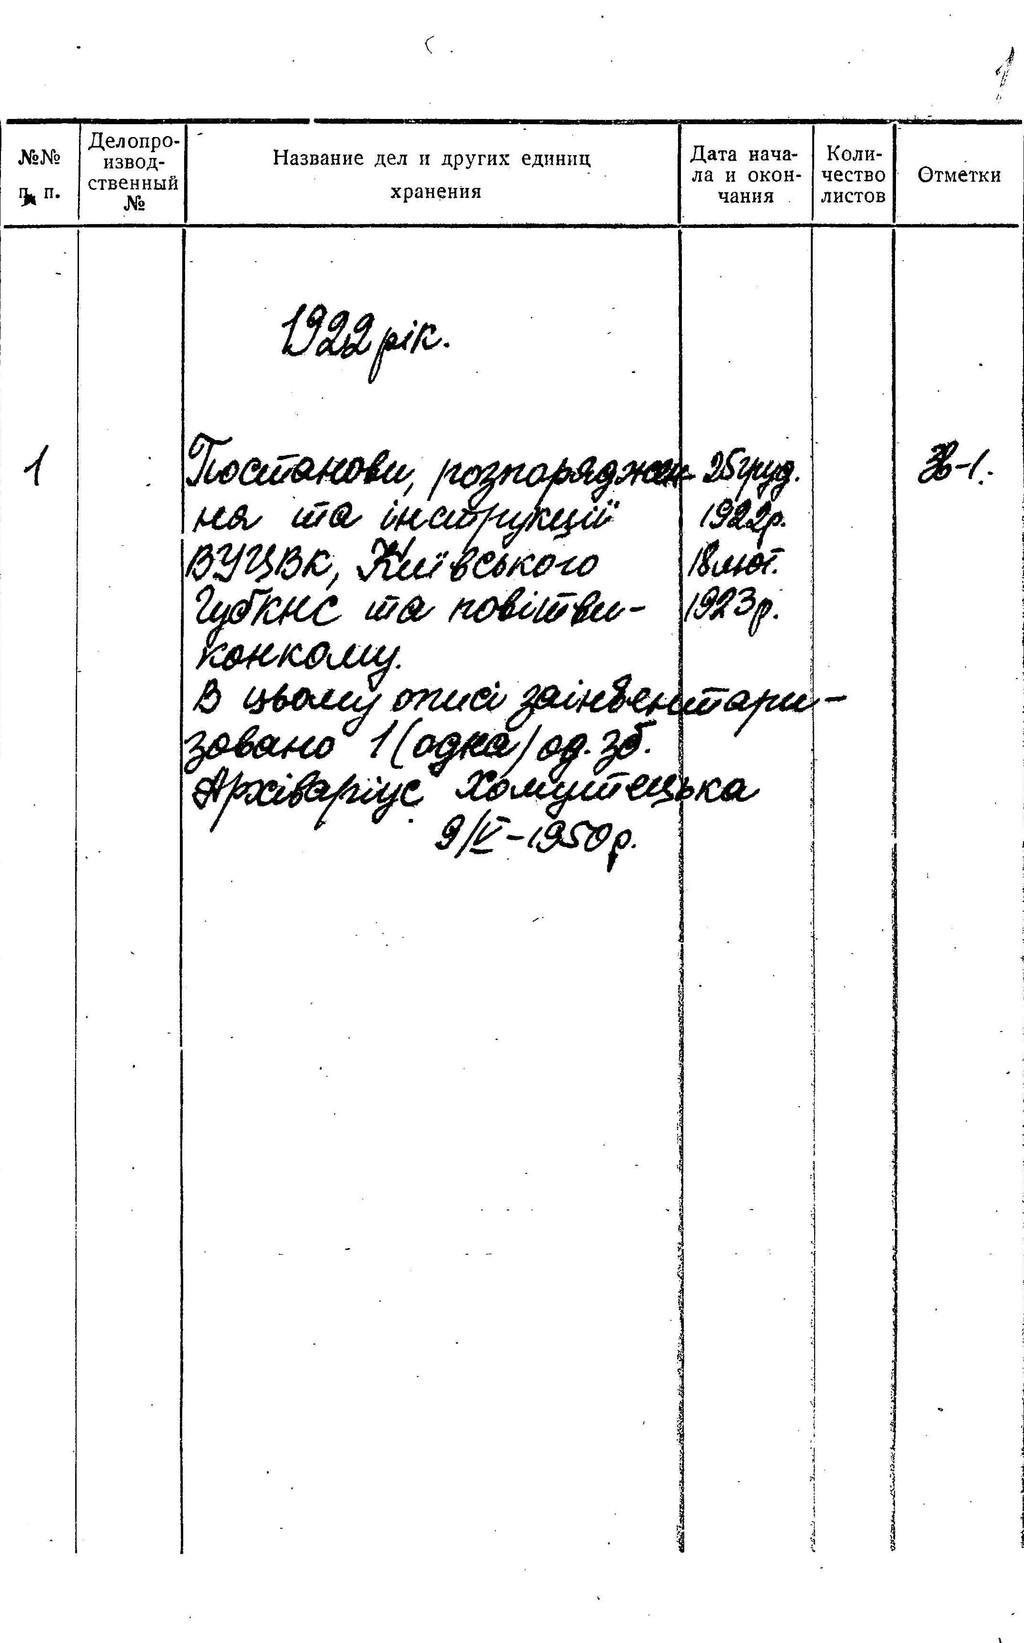 1
№№ п. п.
Делопроизводственный №
Название дел и других единиц хранения
Дата начала и окончания
Количество листов
Отметки
1922 рік.
1 Постанови, розпоряджен- 25 груд.
ня та інструкції 1922р.
ВУЦВК, Київського 18 лют.
ГубКНС та повітви- 1923 р.
конкому.
В цьому описі заінвентари-
зовано 1 (одна) од. зб.
Архіваріус Хомутецька
9/V-1950р.